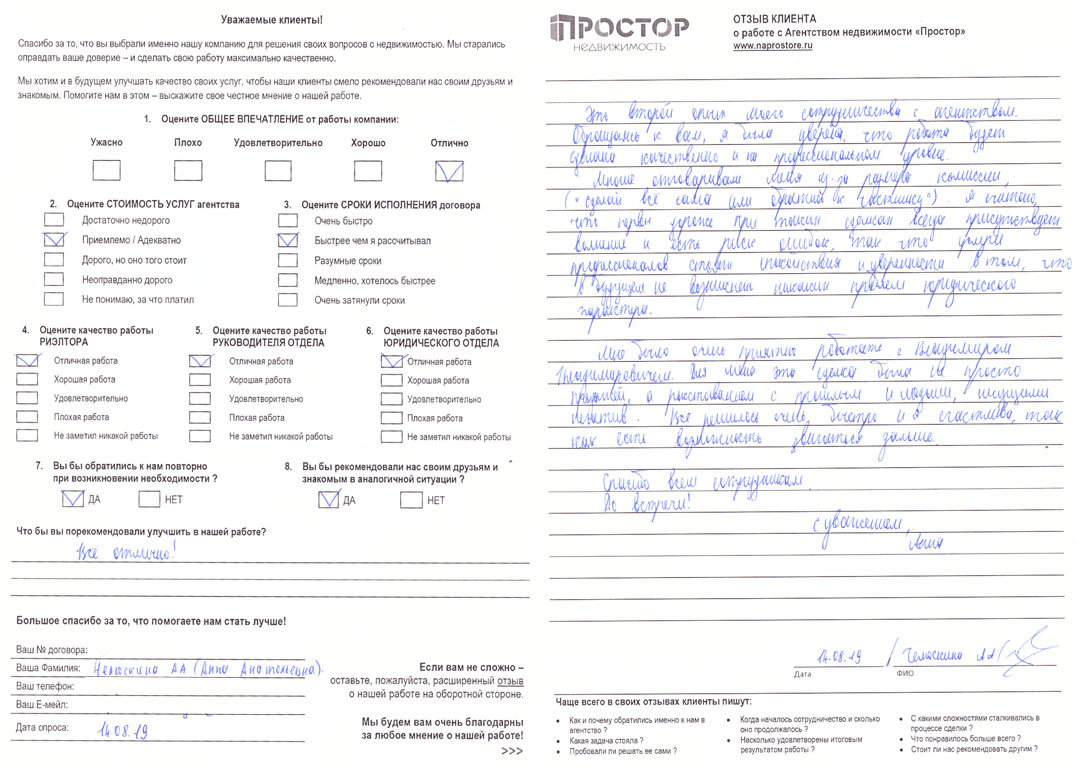 Уважаемые клиенты!
Спасибо за то, что вы выбрали именно нашу компанию для решения своих вопросов с недвижимостью. Мы старались
оправдать ваше доверие – и сделать свою работу максимально качественно.
Мы хотим и в будущем улучшать качество своих услуг, чтобы наши клиенты смело рекомендовали нас своим друзьям и
знакомым. Помогите нам в этом – выскажите свое честное мнение о нашей работе.
1. Оцените ОБЩЕЕ ВПЕЧАТЛЕНИЕ от работы компании:
Ужасно Плохо Удовлетворительно Хорошо Отлично
2. Оцените СТОИМОСТЬ УСЛУГ агентства
Достаточно недорого
Приемлемо / Адекватно
Дорого, но оно того стоит
Неоправданно дорого
Не понимаю, за что платил
3. Оцените СРОКИ ИСПОЛНЕНИЯ договора
Очень быстро
Быстрее чем я рассчитывал
Разумные сроки
Медленно, хотелось быстрее
Очень затянули сроки
4. Оцените качество работы
РИЭЛТОРА
Отличная работа
Хорошая работа
Удовлетворительно
Плохая работа
Не заметил никакой работы
5. Оцените качество работы
РУКОВОДИТЕЛЯ ОТДЕЛА
Отличная работа
Хорошая работа
Удовлетворительно
Плохая работа
Не заметил никакой работы
6. Оцените качество работы
ЮРИДИЧЕСКОГО ОТДЕЛА
Отличная работа
Хорошая работа
Удовлетворительно
Плохая работа
Не заметил никакой работы
7. Вы бы обратились к нам повторно
при возникновении необходимости ?
ДА НЕТ
8. Вы бы рекомендовали нас своим друзьям и
знакомым в аналогичной ситуации ?
ДА НЕТ
Что бы вы порекомендовали улучшить в нашей работе?
Все отлично!
Большое спасибо за то, что помогаете нам стать лучше!
Ваш № договора:
Ваша Фамилия: АА (Анна Анатольевна).
Ваш телефон:
Ваш Е-мейл:
Дата опроса: 14.08.19
Если вам не сложно –
оставьте, пожалуйста, расширенный отзыв
о нашей работе на оборотной стороне.
Мы будем вам очень благодарны
за любое мнение о нашей работе!
>>>
ПРОСТОР
НЕДВИЖИМОСТЬ
ОТЗЫВ КЛИЕНТА
о работе с Агентством недвижимости «Простор»
www.naprostore.ru
Это второй опыт моего сотрудничества с агентством.
Обращаясь к вам, я была уверена, что работа будет
сделана качественно и на профессиональном уровне.
Многие отговаривали меня из-за размера комиссии,
("сделай всё сама или обратись к частнику"). Я считаю,
что нервы дороже при таких сделках всегда присутствует
волнение и есть риск ошибок, так что услуги
профессионалов стоят спокойствия и уверенности в том, что
в будущем не возникнет никаких проблем юридического
характера.
Мне было очень приятно работать с Владимиром
Владимировичем. Для меня эта сделка была не просто
продажей, а расставанием с прошлым и людьми, несущими
негатив. Всё решилось очень быстро и я счастлива, так
как есть возможность двигаться дальше.
Спасибо всем сотрудникам.
До встречи!
с уважением,
Анна
14.08.19 / АА /
Дата ФИО
Чаще всего в своих отзывах клиенты пишут:
• Как и почему обратились именно к нам в
агентство ?
• Какая задача стояла ?
• Пробовали ли решать ее сами ?
• Когда началось сотрудничество и сколько
оно продолжалось ?
• Насколько удовлетворены итоговым
результатом работы ?
• С какими сложностями сталкивались в
процессе сделки ?
• Что понравилось больше всего ?
• Стоит ли нас рекомендовать другим ?